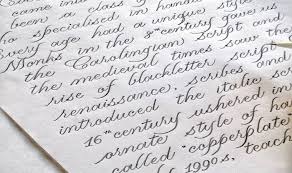 came into
been a class of
who specialised in hand
Every age had a unique style
Monks in the 8th century gave us
the Carolingian script and
the medieval times saw the
rise of blackletter script
renaissance, scribes and
introduced the italic sc
16th century ushered in
ornate style of ha
called "copperplate"
1990s, teach